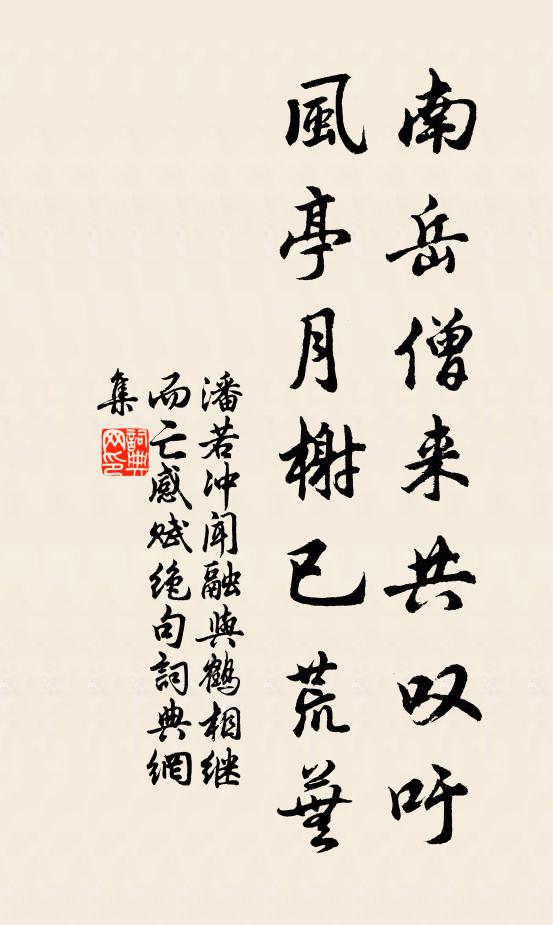 南岳僧来共叹吁
風亭月榭已荒蕪
潘若冲闻融與鶴相继
而亡感赋绝句詞典網
集
詞典
网印